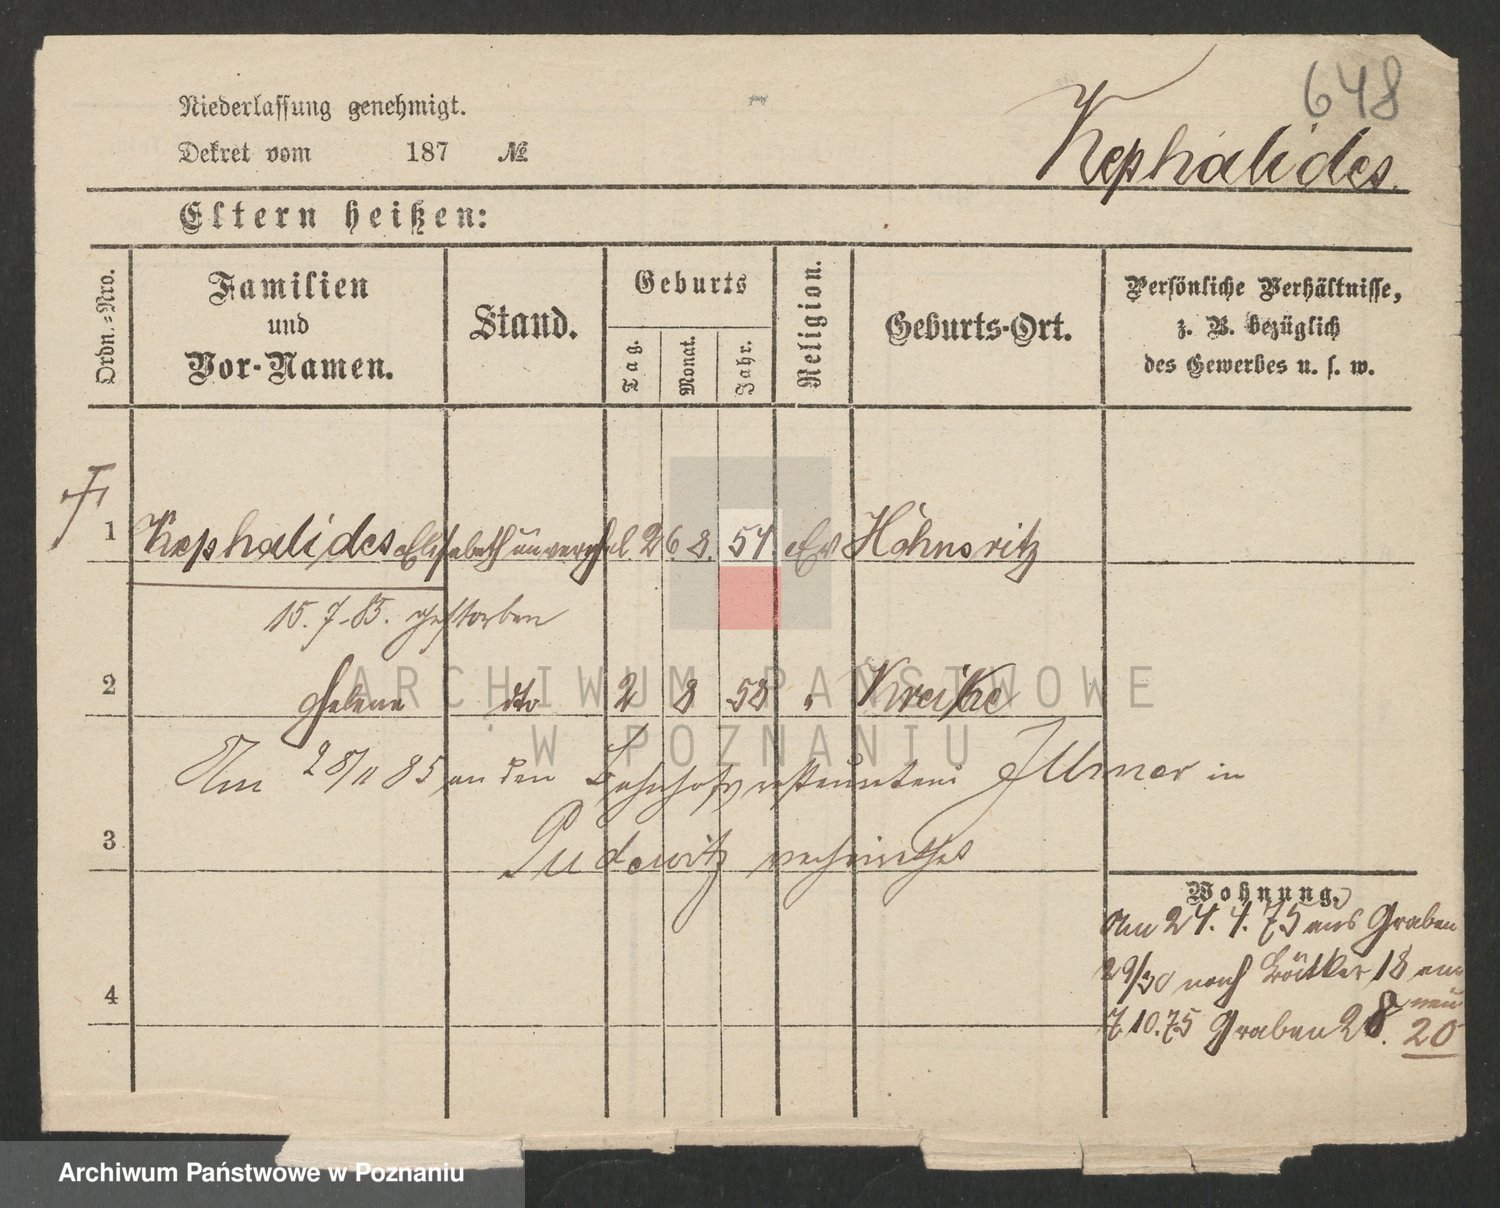 648
Niederlassung genehmigt.
Dekret vom 187 №
Kephalides.
Eltern heißen:
Ordn.-Nro.
Familien
und
Vor-Namen.
Stand.
Geburts
Tag.
Monat.
Jahr.
Religion.
Geburts-Ort.
Persönliche Verhältnisse,
z. B. bezüglich
des Gewerbes u. s. w.
1 Kephalides Elisabeth unverehel. 26. 8. 54. Ev Höhnsritz
15. 7. 85. gestorben
2 Helene dto 2 8 58 " Kreike
Am 28/11 85 an den Bahnhofsrestaurateur Illmer in
3 Pudewitz verheirathet
4
Wohnung.
Am 24. 4. 75 aus Graben
29/30 nach Büttler 18 am
7.10.75 Graben 28. neu
20
ARCHIWUM PAŃSTWOWE
W POZNANIU
Archiwum Państwowe w Poznaniu